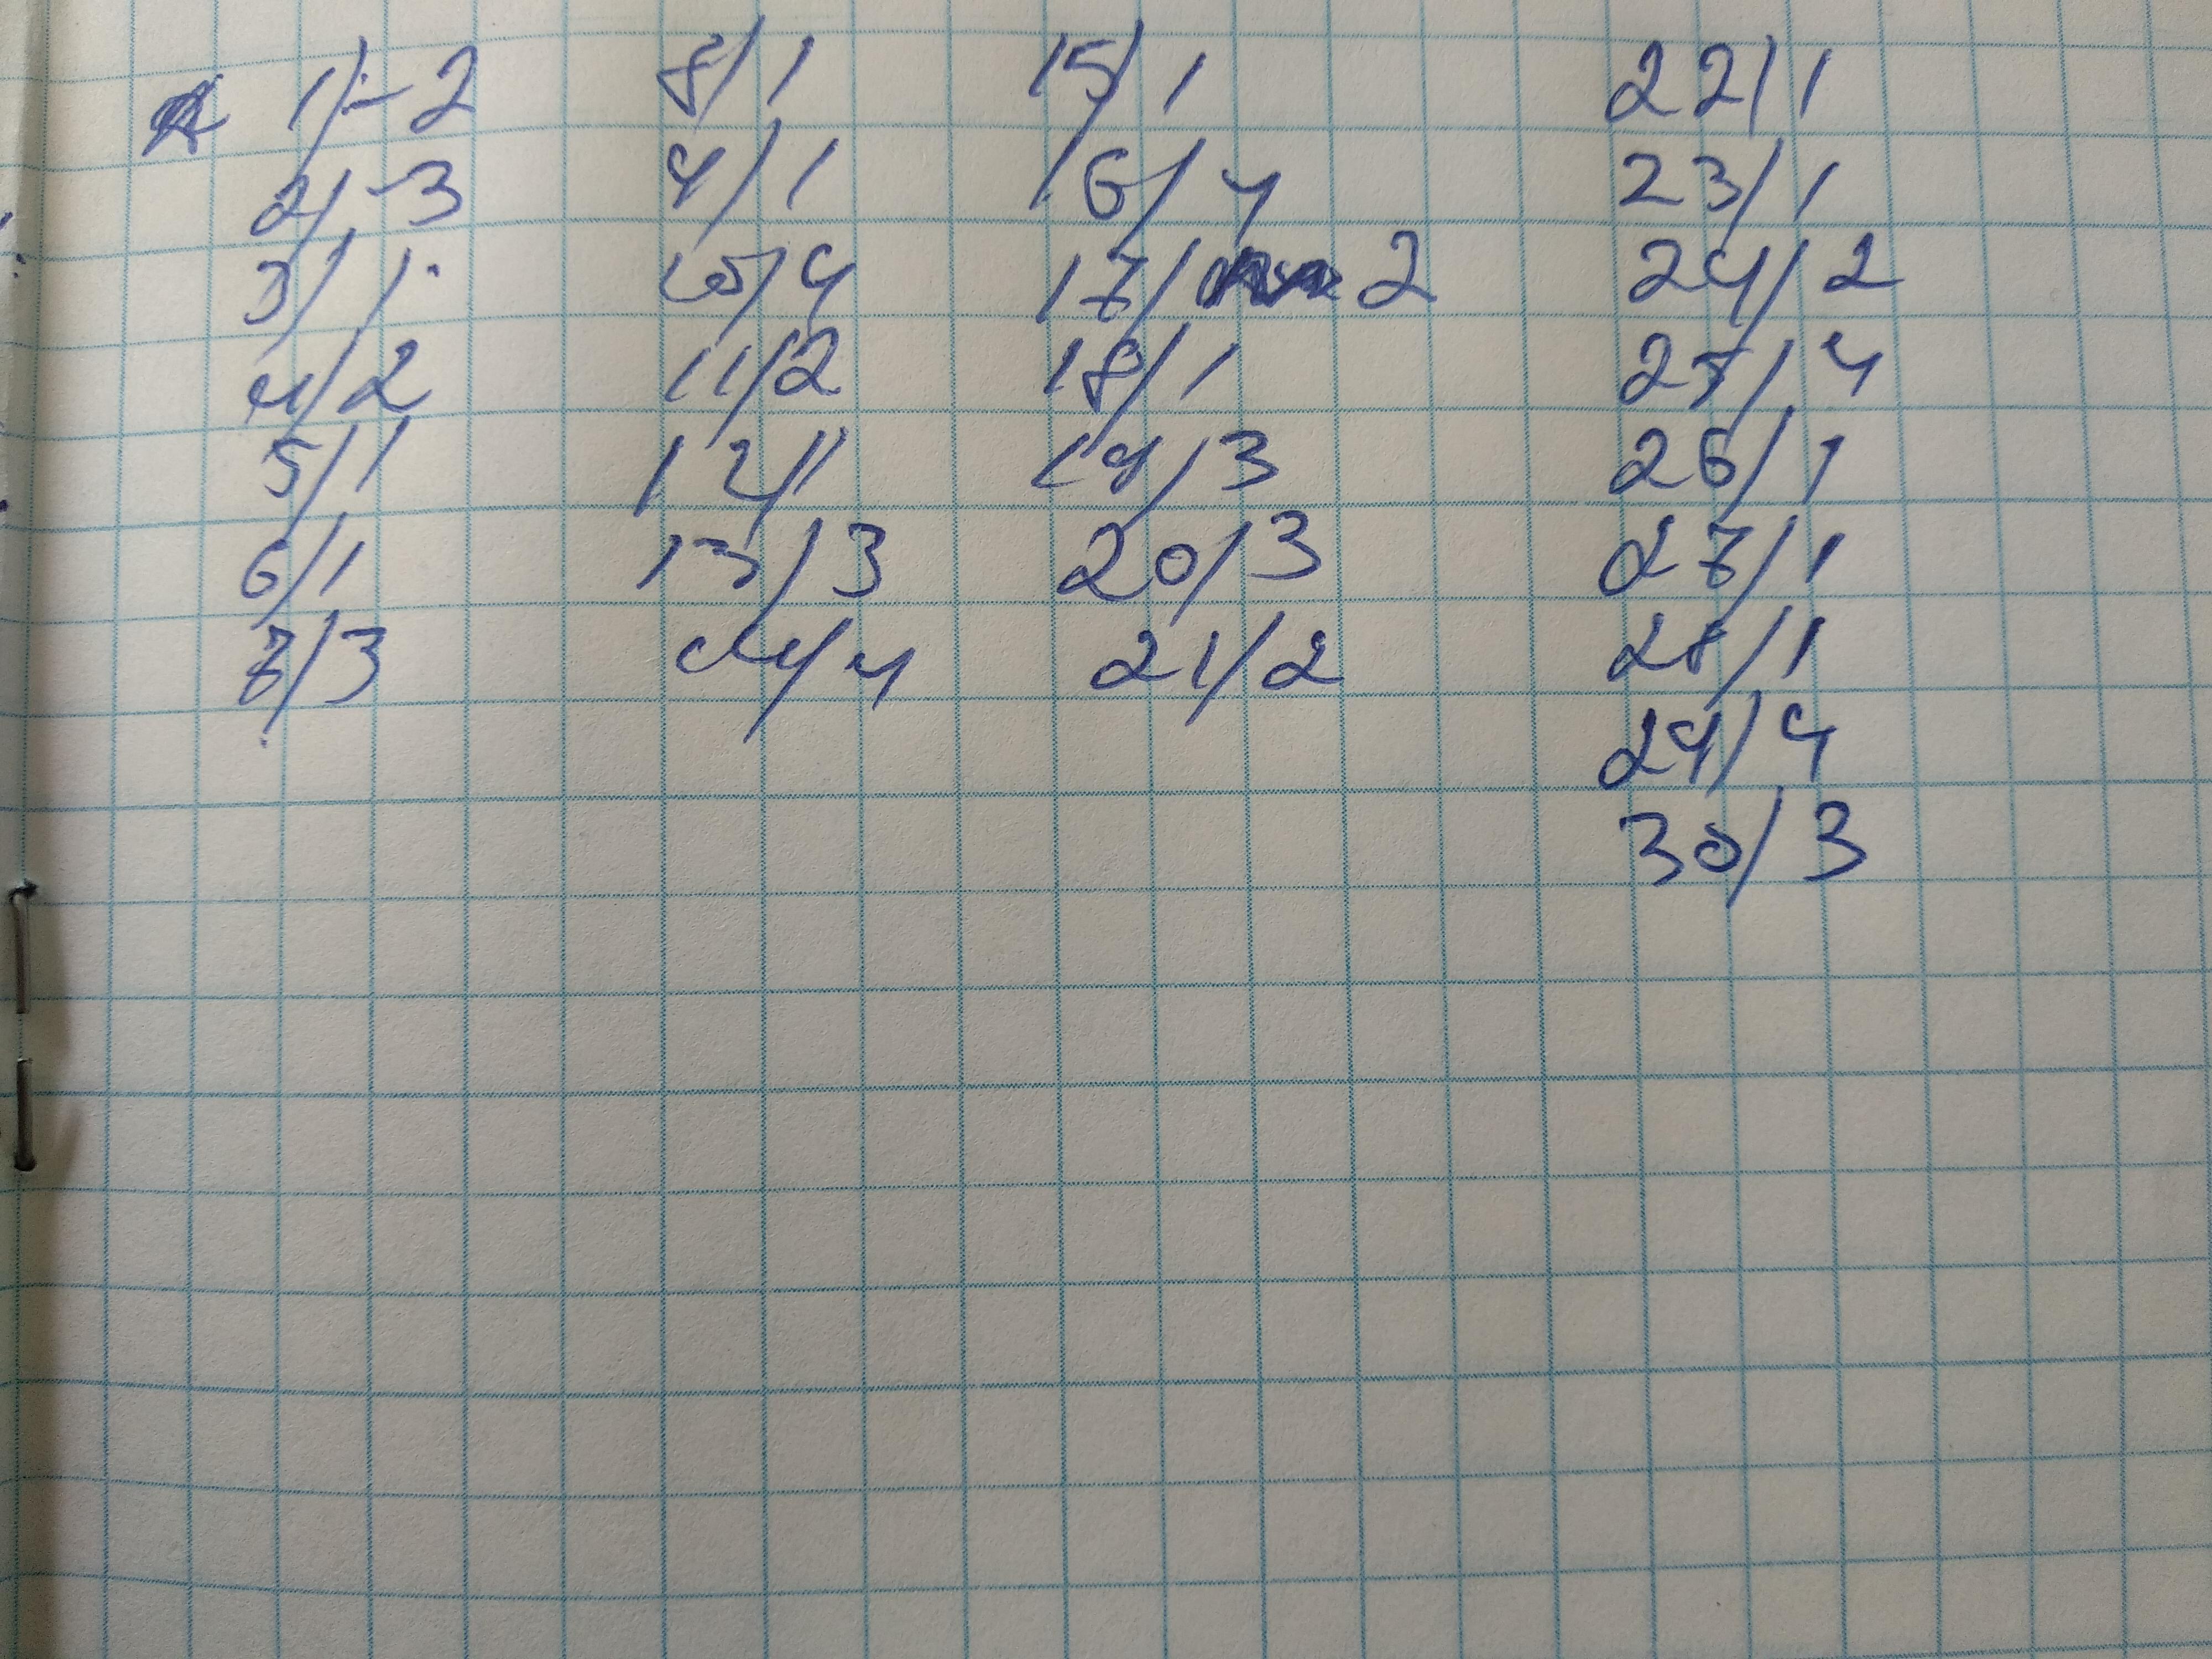 1/ - 2
2/ - 3
3/ 1.
4/ 2
5/ 1
6/ 1
7/ 3
8/ 1
9/ 1
10/ 4
11/ 2
12/ 1
13/ 3
14/ 4
15/ 1
16/ 4
17/ 2
18/ 1
19/ 3
20/ 3
21/ 2
22/ 1
23/ 1
24/ 2
25/ 4
26/ 1
27/ 1
28/ 1
29/ 4
30/ 3